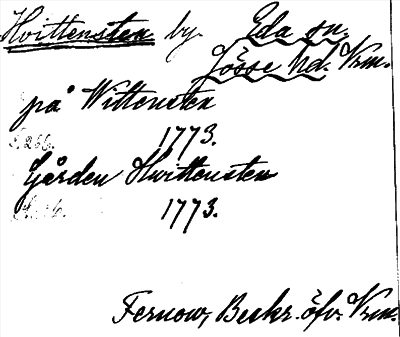 Hvittensten by. Eda sn.
Jösse hd. Vrm.
på Wittensten
S. 266. 1773.
Gården Hwittensten
1773.
Fernow, Beskr. öfv. Vrm.